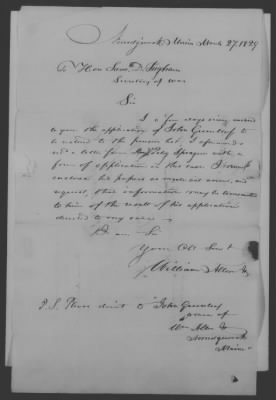 Norridgewock Maine March 27, 1829
To Hon Saml. D. Ingham
Secretary of War
Sir
I a few days since
to you the application of John Greenleaf to
be restored to the pension list, I afterwards
a letter from Sprague with a
form of application in this case I now
enclose his papers and
request, that information may be transmitted
to him of the result of his application
directed to my care
I am Sir
Your Obt Servt
William Allen Jr
P.S. Please direct to John Greenleaf
care of
Wm Allen Jr
Norridgewock
Maine